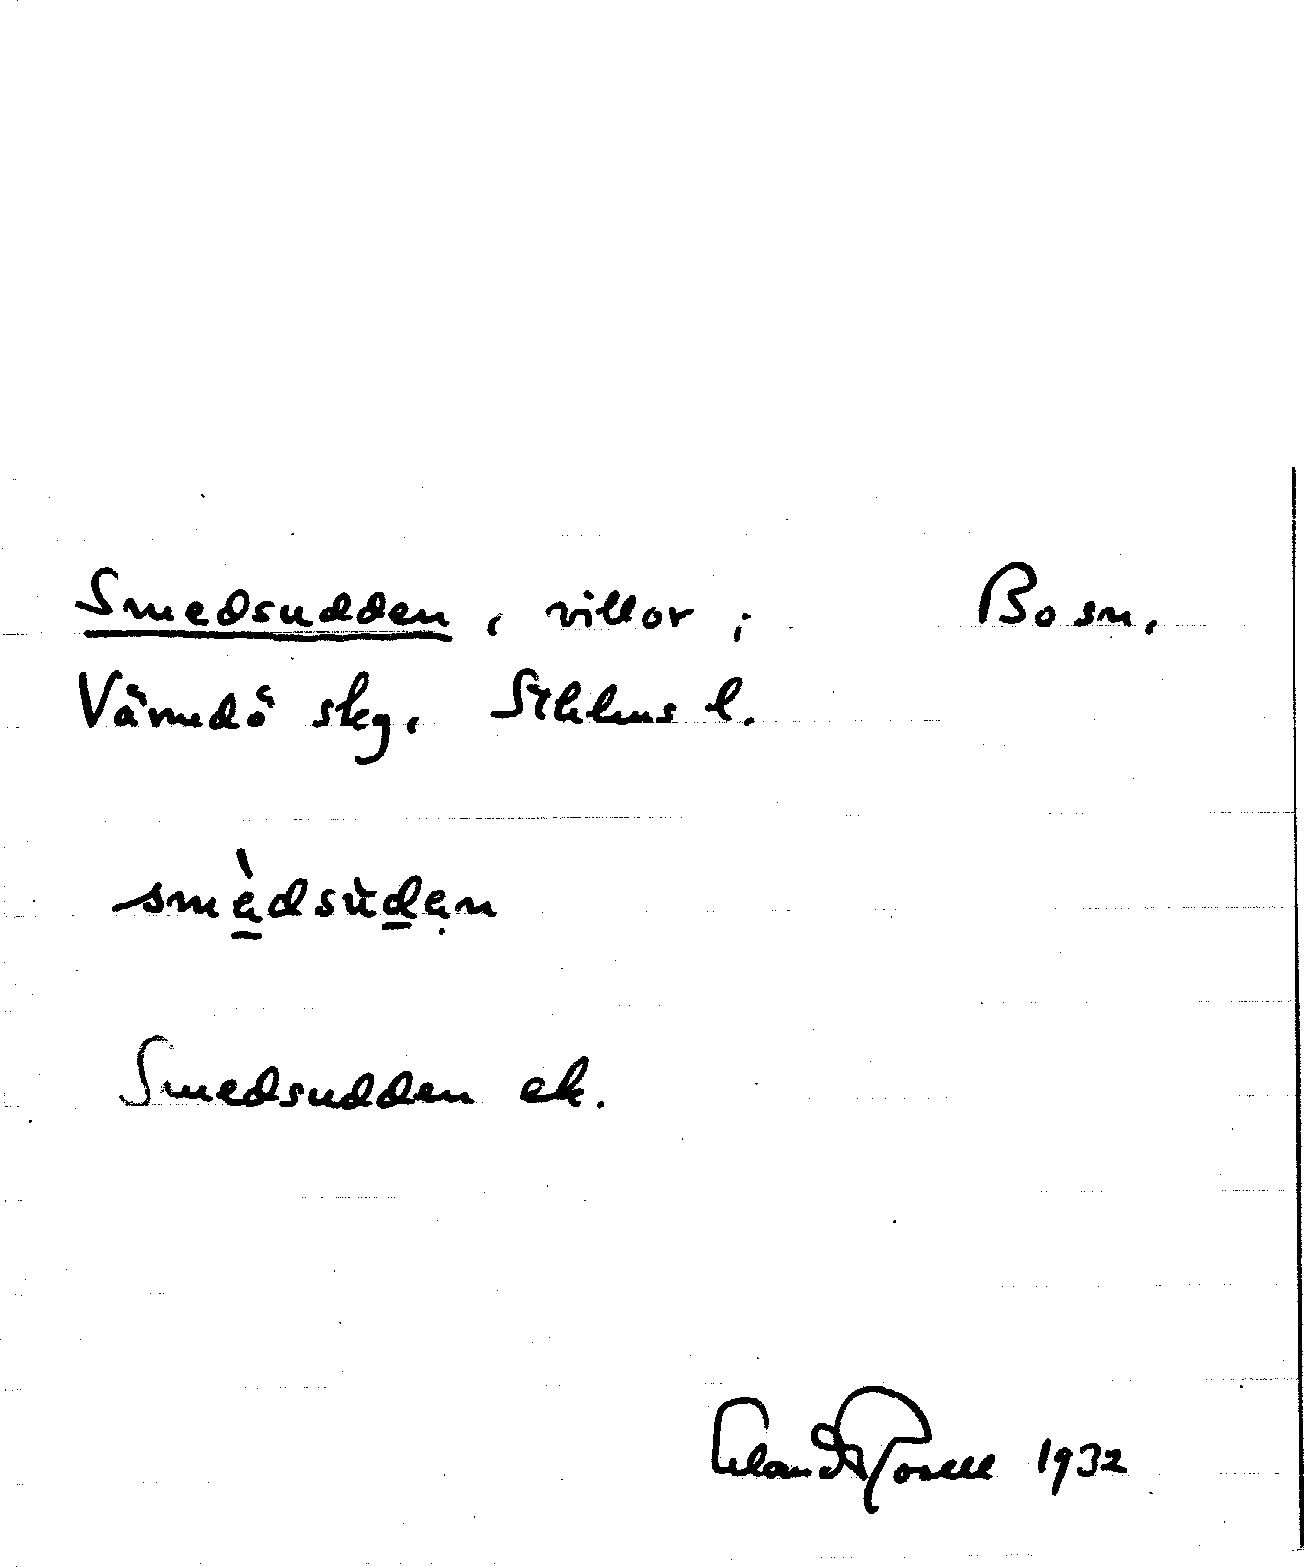 Smedsudden, villor, Bosn.
Värmdö skg. Sthlms l.
smèdsùdẹn
Smedsudden ek.
Erland Rosell 1932